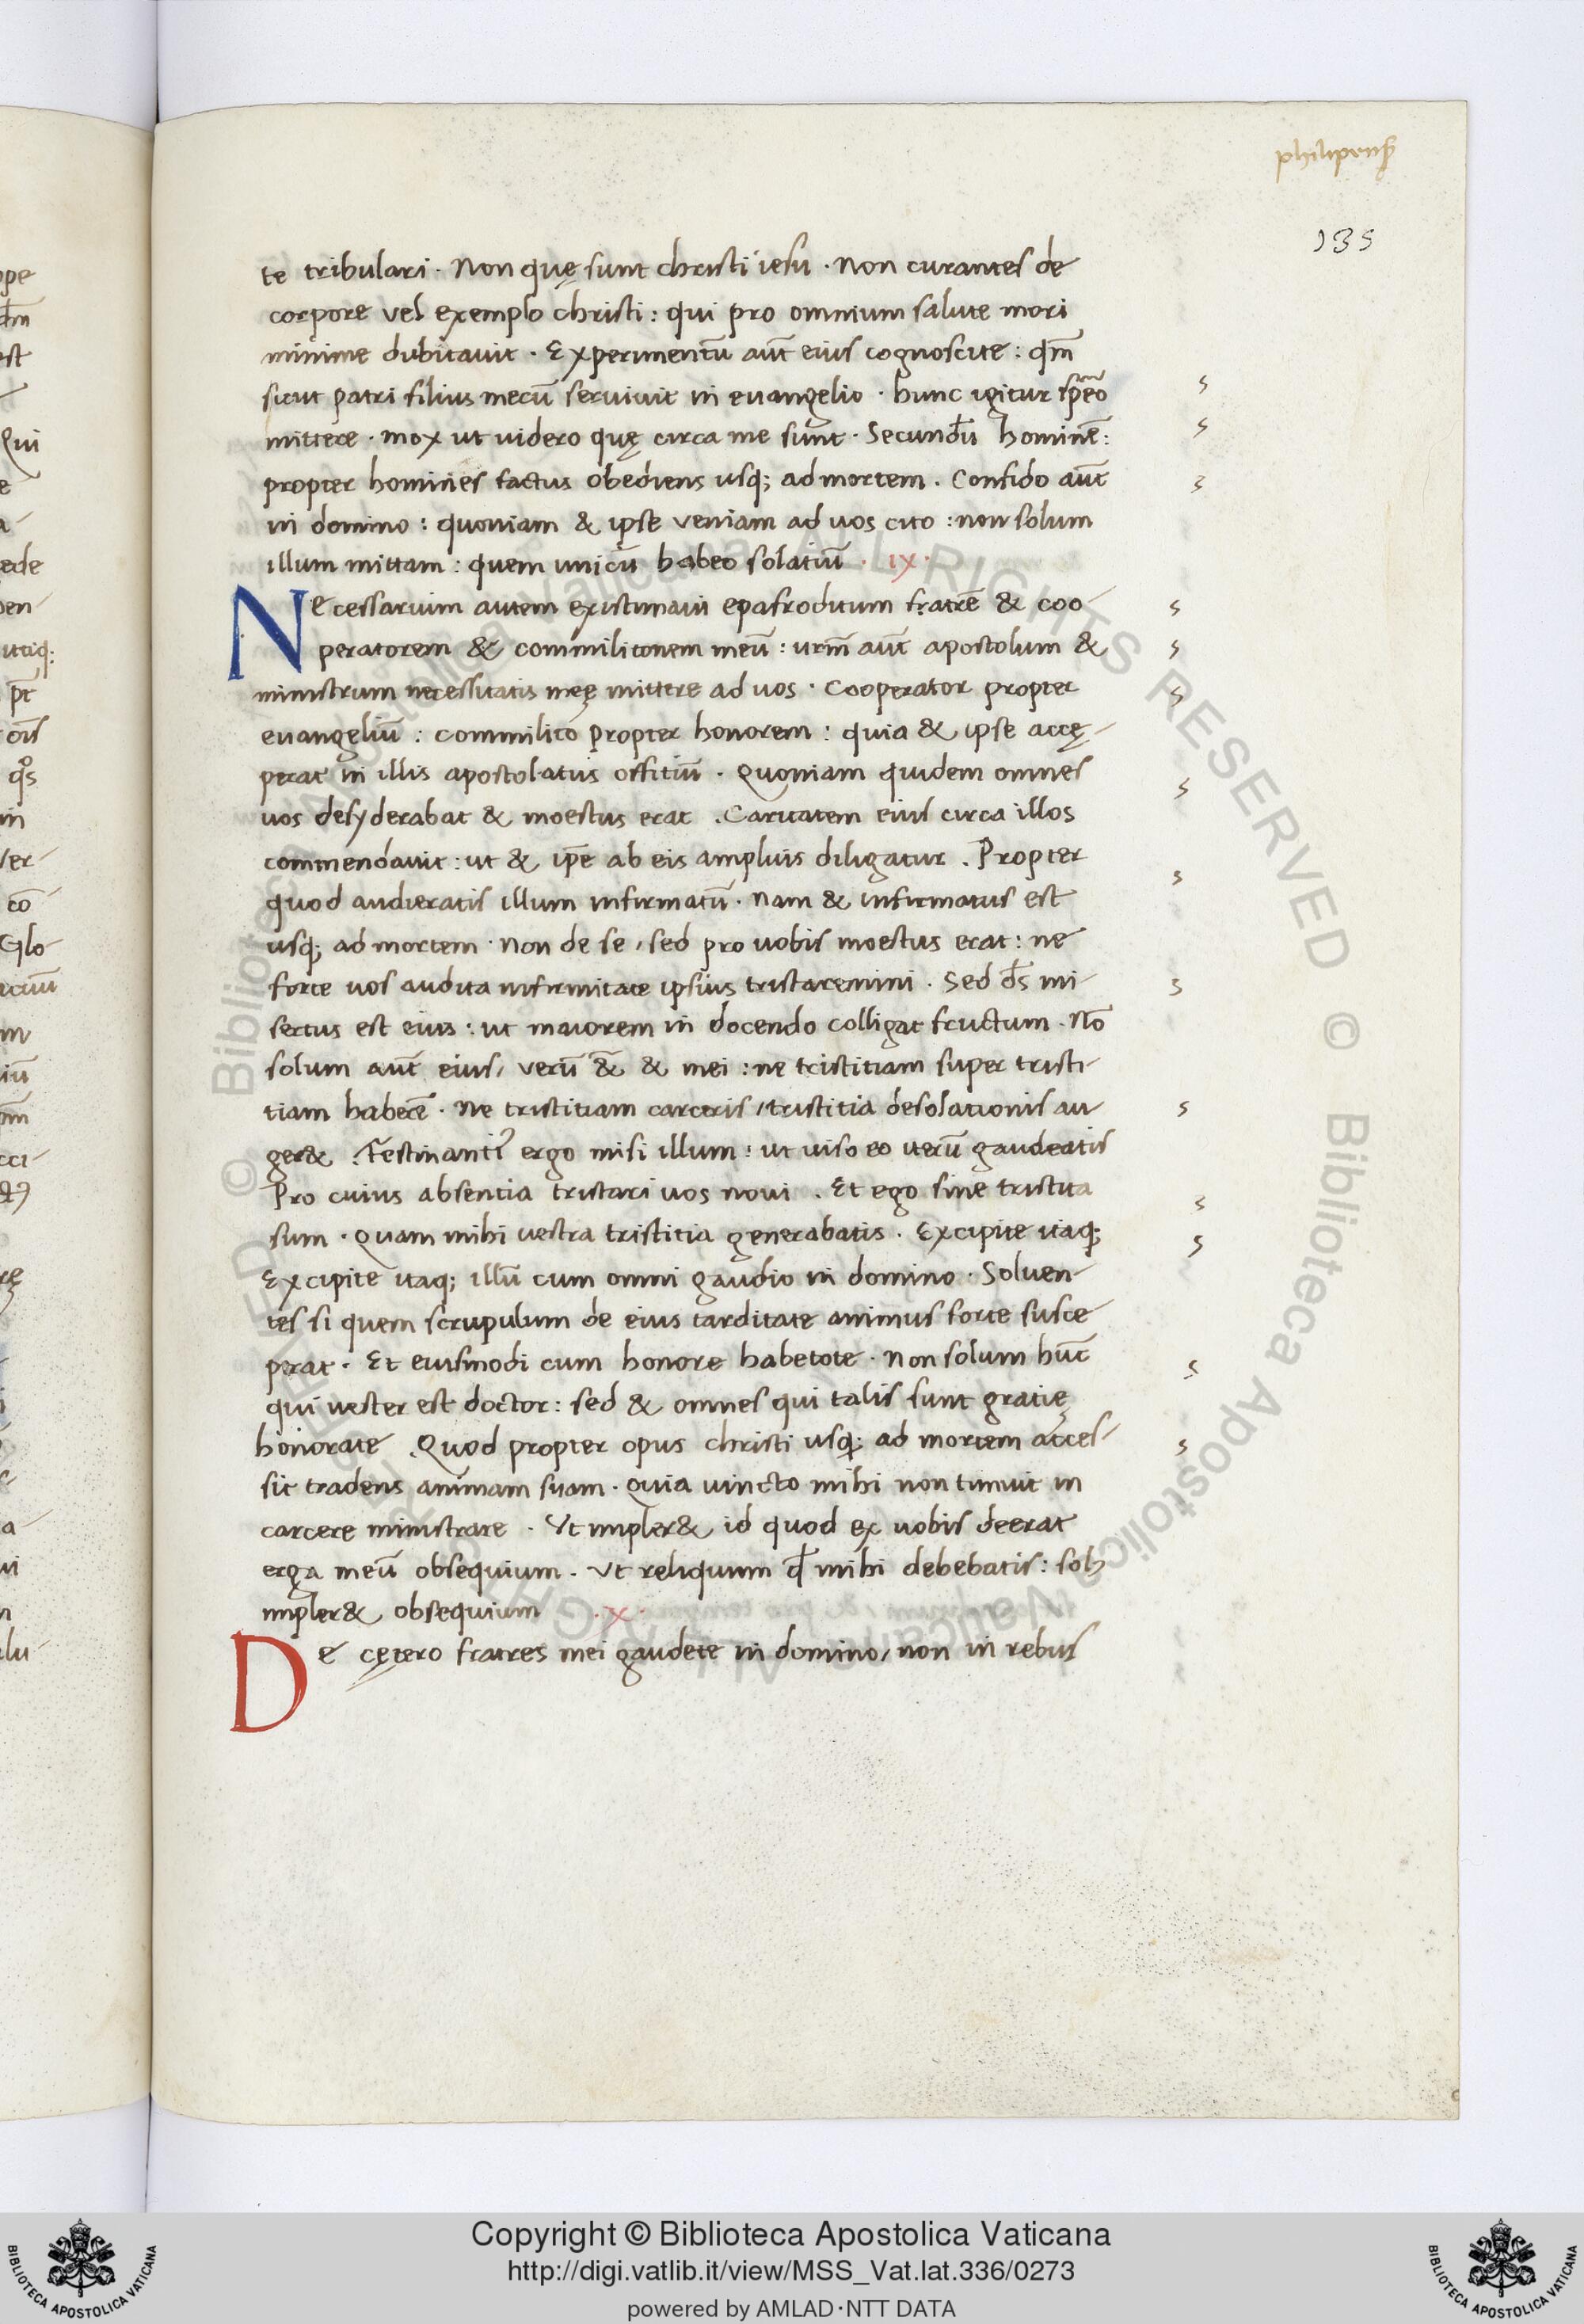 philipenꝭ
135
te tribulari · Non quę sunt christi iesu · Non curantes de
corpore vel exemplo christi : qui pro omnium salute mori
minime dubitavit · Experimentū aūt eius cognoscite : qm̄
sicut patri filius mecū servivit in evangelio · hunc igitur
mittere · mox ut videro quę circa me sunt · Secundū hominē :
propter homines factus obediens usq; ad mortem . Confido aūt
in domino : quoniam & ipse veniam ad vos cito : non solum
illum mittam : quem unicū habeo solatiū · ix ·
Necessarium autem existimavi epafroditum fratrē & coo-
peratorem & commilitonem meū : urm̄ aūt apostolum &
ministrum necessitatis meę mittere ad vos · Cooperator propter
evangeliū : commilito propter honorem : quia & ipse accę-
perat in illis apostolatus offitiū · Quoniam quidem omnes
vos desyderabat & moestus erat . Caritatem eius circa illos
commendavit : ut & ip̄e ab eis amplius diligatur . Propter
quod audieratis illum infirmatū · Nam & infirmatus est
usq; ad mortem · Non de se / sed pro vobis moestus erat : ne
forte vos audita infirmitate ipsius tristaremini . Sed d̄s mi-
sertus est eius : ut maiorem in docendo colligat fructum . Nō
solum aūt eius / verū &̄ & mei : ne tristitiam super tristi-
tiam haberē · Ne tristitiam carceris / tristitia desolationis au
ger& . Festinanter ergo misi illum : ut viso eo iterū gaudeatis
Pro cuius absentia tristari vos novi . Et ego sine tristitia
sum · Quam mihi vestra tristitia generabatis . Excipite itaq;
Excipite itaq; illū cum omni gaudio in domino · Solven-
tes si quem scrupulum de eius tarditate animus forte susce
perat · Et eiusmodi cum honore habetote · Non solum hūc
qui vester est doctor : sed & omnes qui talis sunt gratię
honorate . Quod propter opus christi usq; ad mortem acces-
sit tradens animam suam · Quia vincto mihi non timuit in
carcere ministrare · Ut impler& id quod ex vobis deerat
erga meū obsequium . Ut reliquum qd̄ mihi debebatis :
impler& obsequium · x ·
De cętero fratres mei gaudete in domino / non in rebus
ope
est
Qui
e
a-
ede
pen-
utiq:
in
ver-
cō
Glo-
m
a-
alu-
© Biblioteca Apostolica Vaticana ALL RIGHTS RESERVED
Copyright © Biblioteca Apostolica Vaticana
http://digi.vatlib.it/view/MSS_Vat.lat.336/0273
powered by AMLAD·NTT DATA
BIBLIOTECA APOSTOLICA VATICANA
BIBLIOTECA APOSTOLICA VATICANA